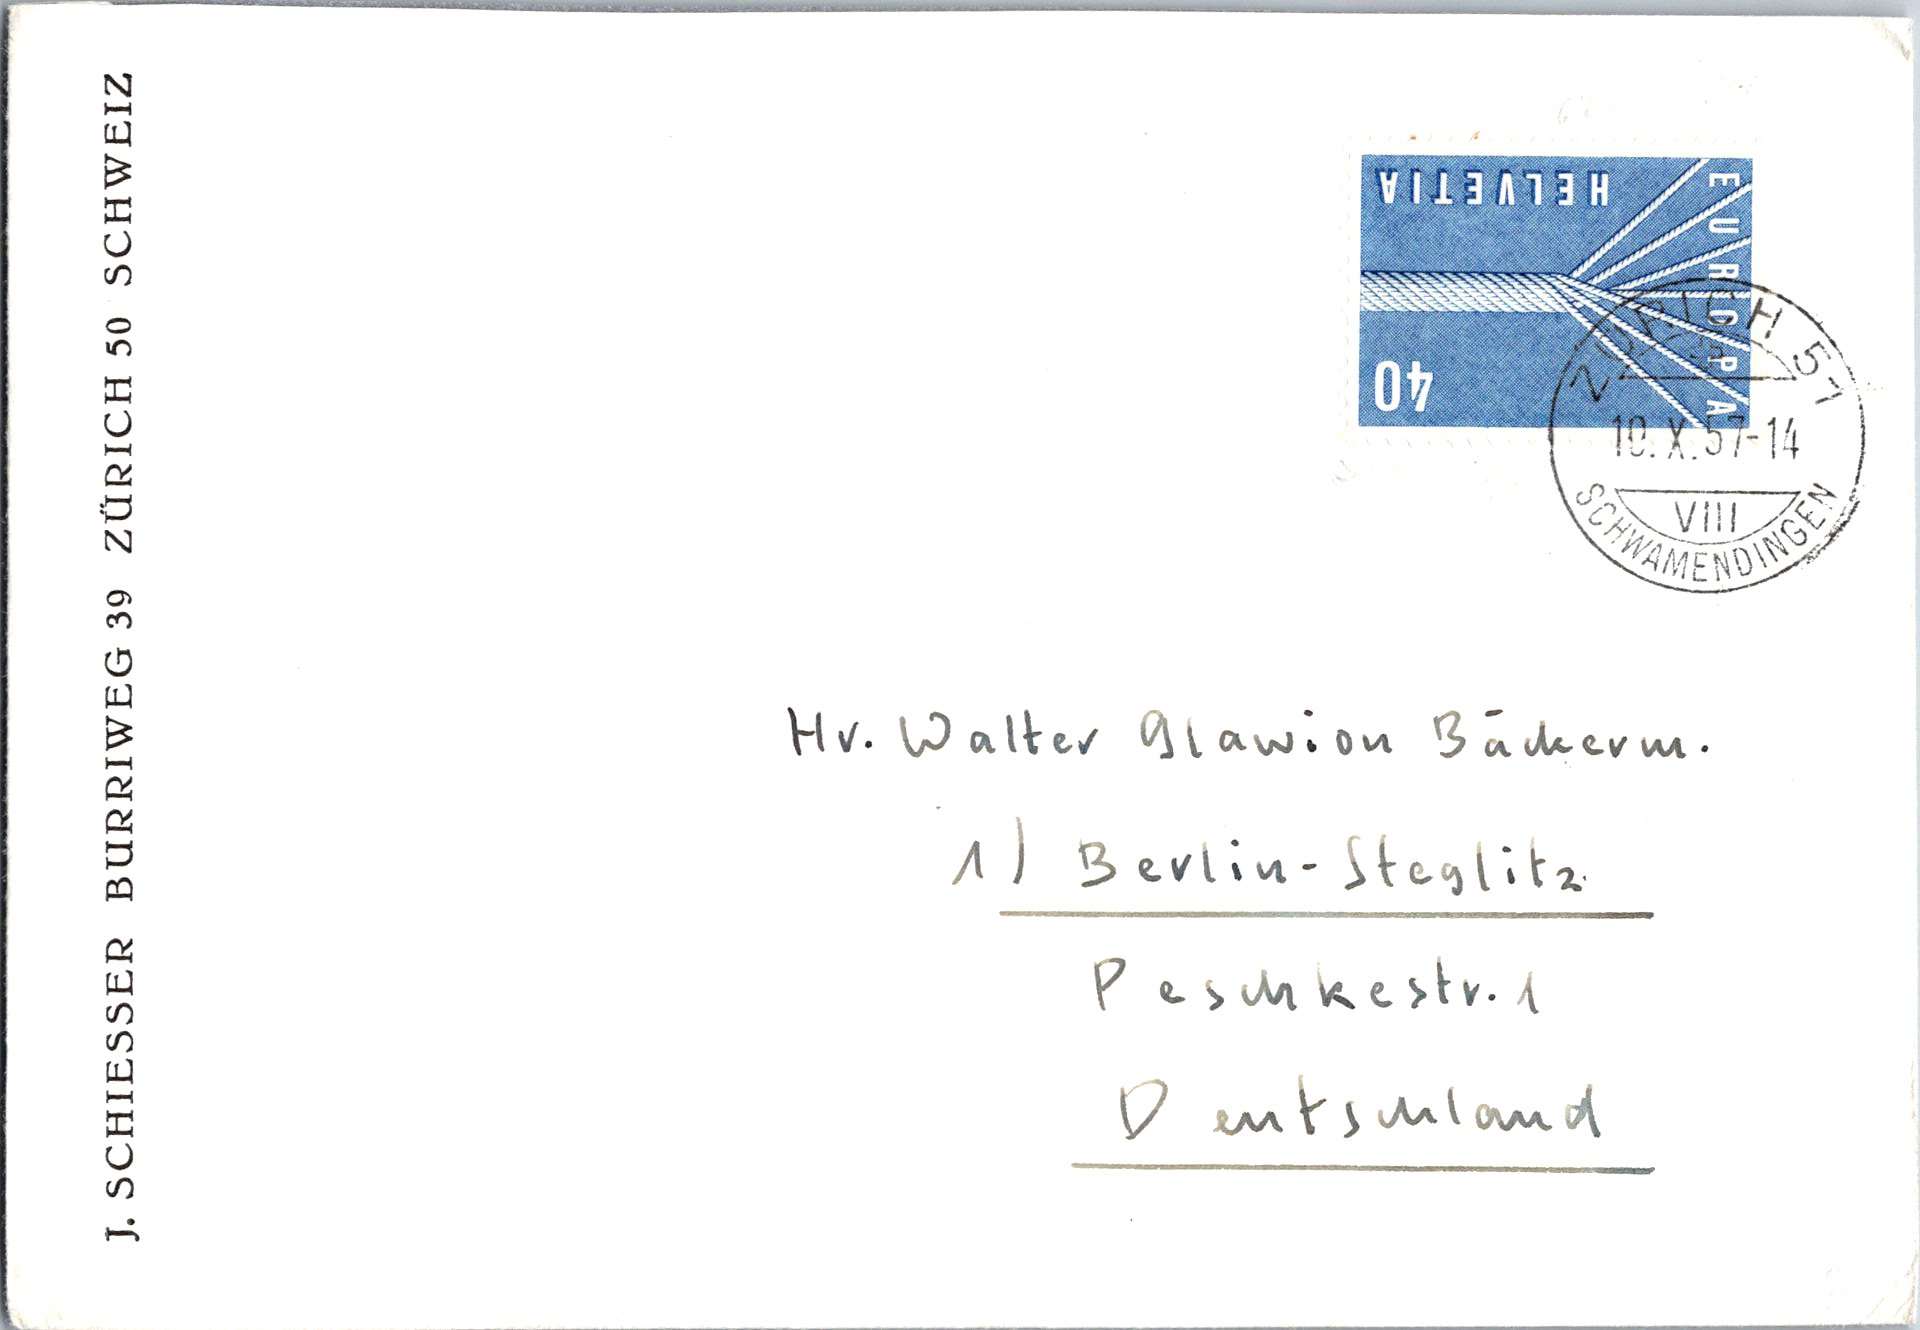 J. SCHIESSER BURRIWEG 39 ZÜRICH 50 SCHWEIZ
HELVETIA
EUROPA
40
ZÜRICH 51
10.X.57-14
VIII
SCHWAMENDINGEN
Hr. Walter Glawion Bäckerm.
1) Berlin-Steglitz
Peschkestr. 1
Deutschland